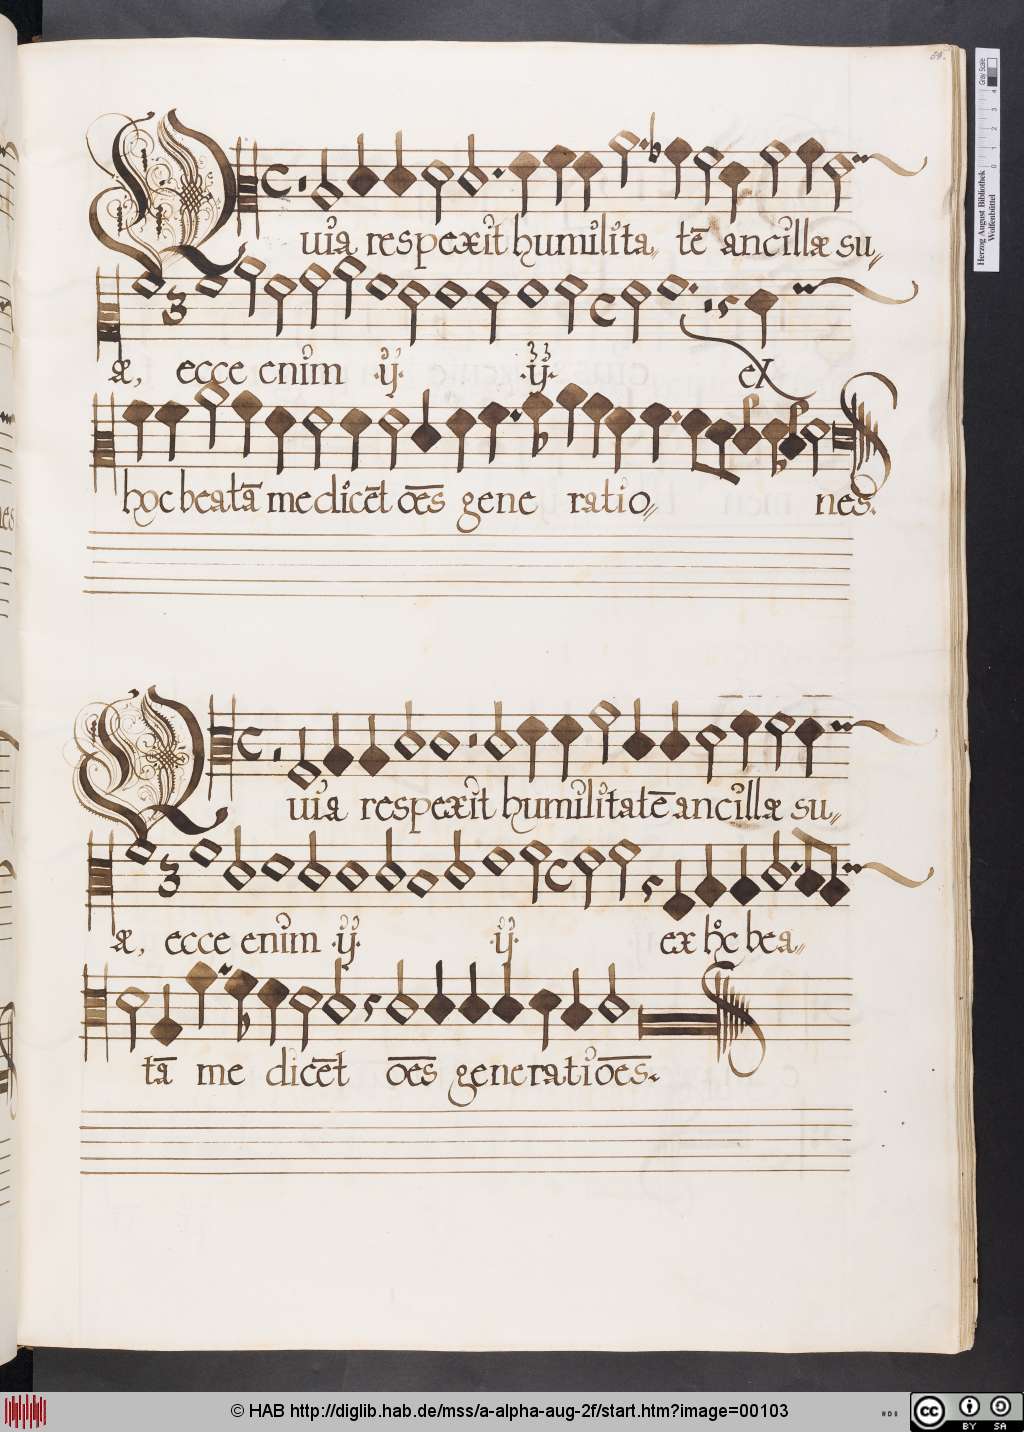 59.
Quia respexit humilita, tē ancillæ su„
æ, ecce enim ·ij· ·ij· ex
hoc beatā me dicēt ōēs gene ratio„ nes.
Quia respexit humilitatē ancillæ su„
æ, ecce enim ·ij· ·ij· ex hoc bea„
tā me dicēt ōēs generatiōēs.
Gray Scale
0 1 2 3 4
Herzog August Bibliothek
Wolfenbüttel
© HAB http://diglib.hab.de/mss/a-alpha-aug-2f/start.htm?image=00103
cc BY SA